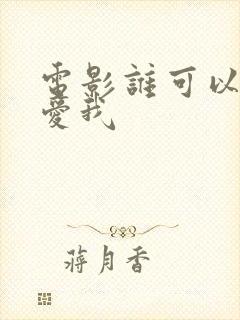 電影誰可以
愛我
蔣月香